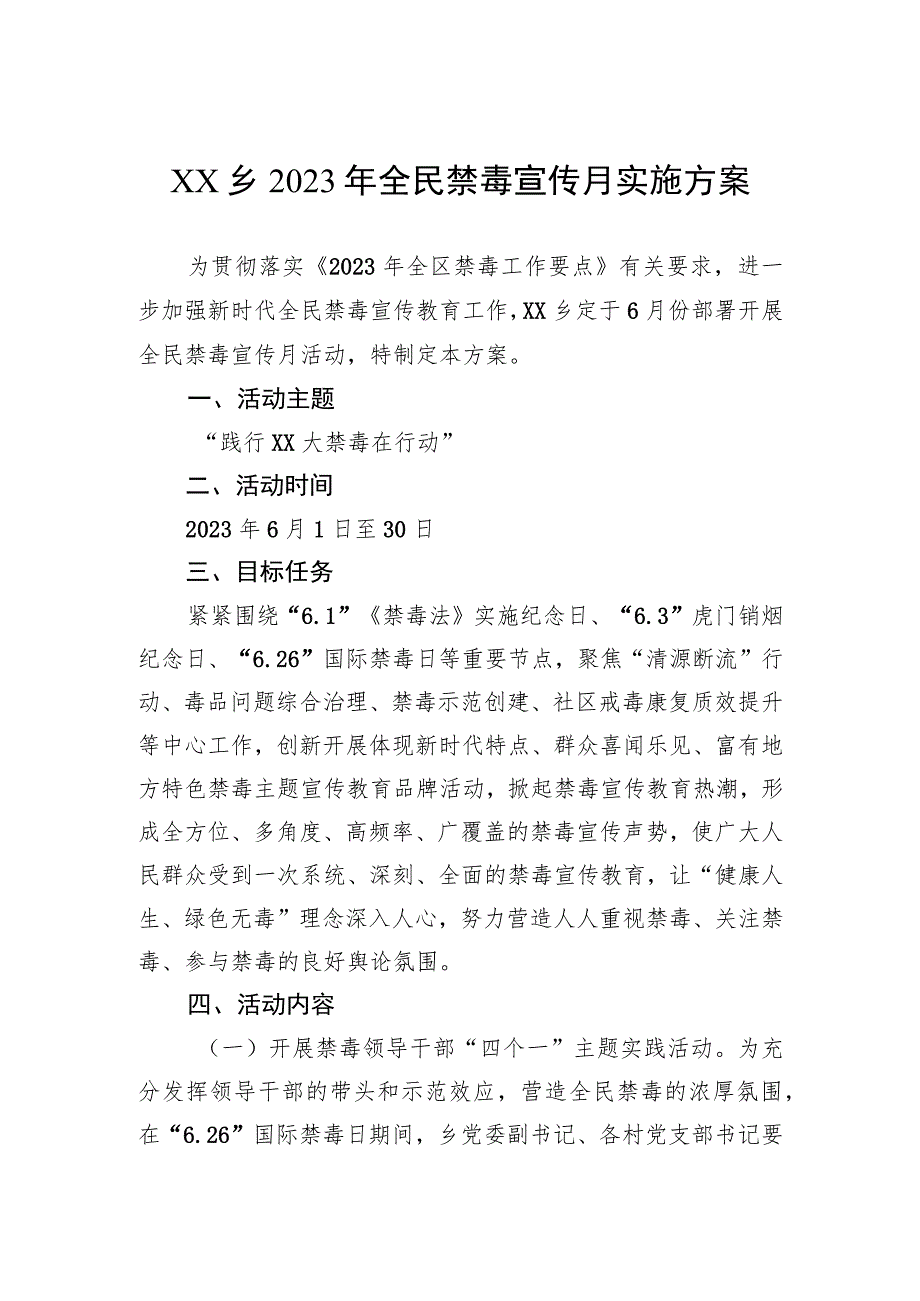 XX乡2023年全民禁毒宣传月实施方案
为贯彻落实《2023年全区禁毒工作要点》有关要求，进一
步加强新时代全民禁毒宣传教育工作，XX乡定于6月份部署开展
全民禁毒宣传月活动，特制定本方案。
一、活动主题
“践行XX大禁毒在行动”
二、活动时间
2023年6月1日至30日
三、目标任务
紧紧围绕“6.1”《禁毒法》实施纪念日、“6.3”虎门销烟
纪念日、“6.26”国际禁毒日等重要节点，聚焦“清源断流”行
动、毒品问题综合治理、禁毒示范创建、社区戒毒康复质效提升
等中心工作，创新开展体现新时代特点、群众喜闻乐见、富有地
方特色禁毒主题宣传教育品牌活动，掀起禁毒宣传教育热潮，形
成全方位、多角度、高频率、广覆盖的禁毒宣传声势，使广大人
民群众受到一次系统、深刻、全面的禁毒宣传教育，让“健康人
生、绿色无毒”理念深入人心，努力营造人人重视禁毒、关注禁
毒、参与禁毒的良好舆论氛围。
四、活动内容
（一）开展禁毒领导干部“四个一”主题实践活动。为充
分发挥领导干部的带头和示范效应，营造全民禁毒的浓厚氛围，
在“6.26”国际禁毒日期间，乡党委副书记、各村党支部书记要